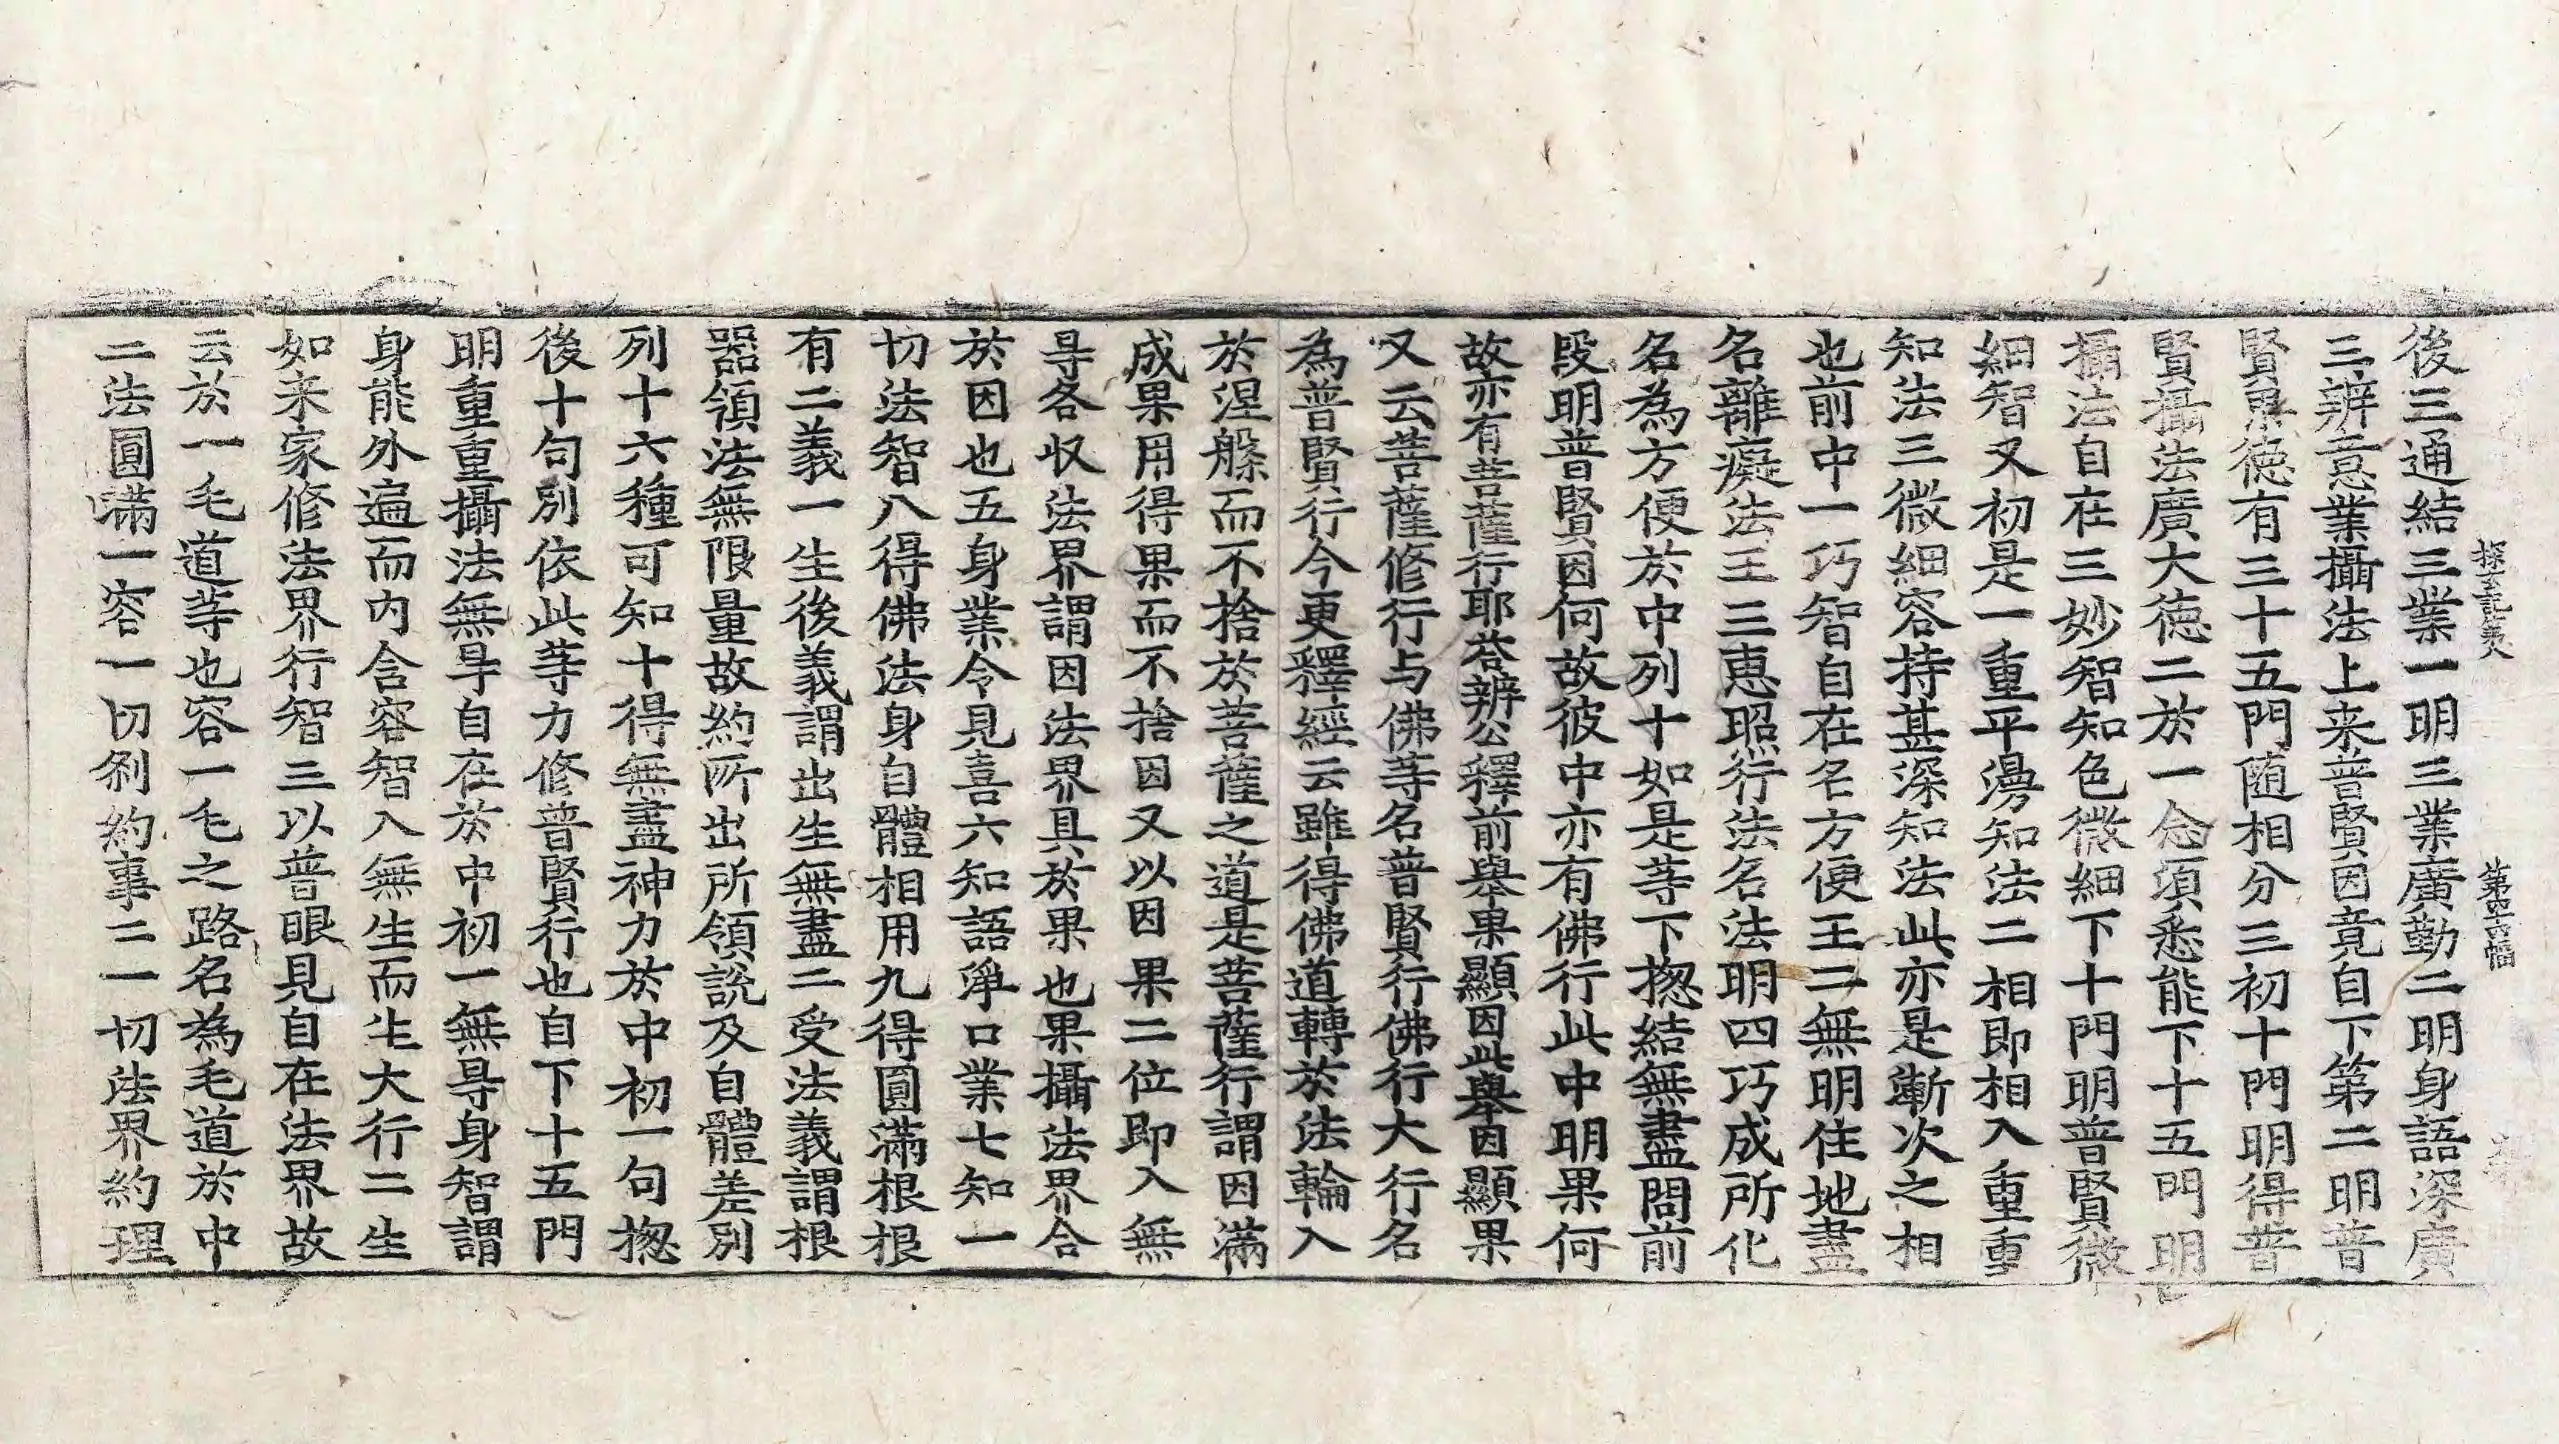 探玄記第八　第四十六幅
後三通結三業一明三業廣勤二明身語深廣
三辨意業攝法上来普賢因竟自下第二明普
賢果德有三十五門随相分三初十門明得普
賢攝法廣大德二於一念湏悉能下十五門明
攝法自在三妙智知色微細下十門明普賢微
細智又初是一重平漫知法二相即相入重重
知法三微細容持甚深知法此亦是漸次之相
也前中一巧智自在名方便王二無明住地盡
名離癡法王三惠照行法名法明四巧成所化
名為方便於中列十如是等下揔結無盡問前
段明普賢因何故彼中亦有佛行此中明果何
故亦有菩薩行耶答辨公釋前舉果顯因此舉因顯果
又云菩薩修行与佛等名普賢行佛行大行名
為普賢行今更釋經云雖得佛道轉於法輪入
於涅槃而不捨於菩薩之道是菩薩行謂因滿
成果用得果而不捨因又以因果二位即入無
㝵各収法界謂因法界具於果也果攝法界合
於因也五身業令見喜六知語淨口業七知一
切法智八得佛法身自體相用九得圓滿根根
有二義一生後義謂出生無盡二受法義謂根
器領法無限量故約所出所領説及自體差別
列十六種可知十得無盡神力於中初一句揔
後十句別依此等力修普賢行也自下十五門
明重重攝法無㝵自在於中初一無㝵身智謂
身能外遍而内含容智入無生而生大行二生
如来家修法界行智三以普眼見自在法界故
云於一毛道等也容一毛之路名為毛道於中
二法圓滿一容一切剎約事二一切法界約理